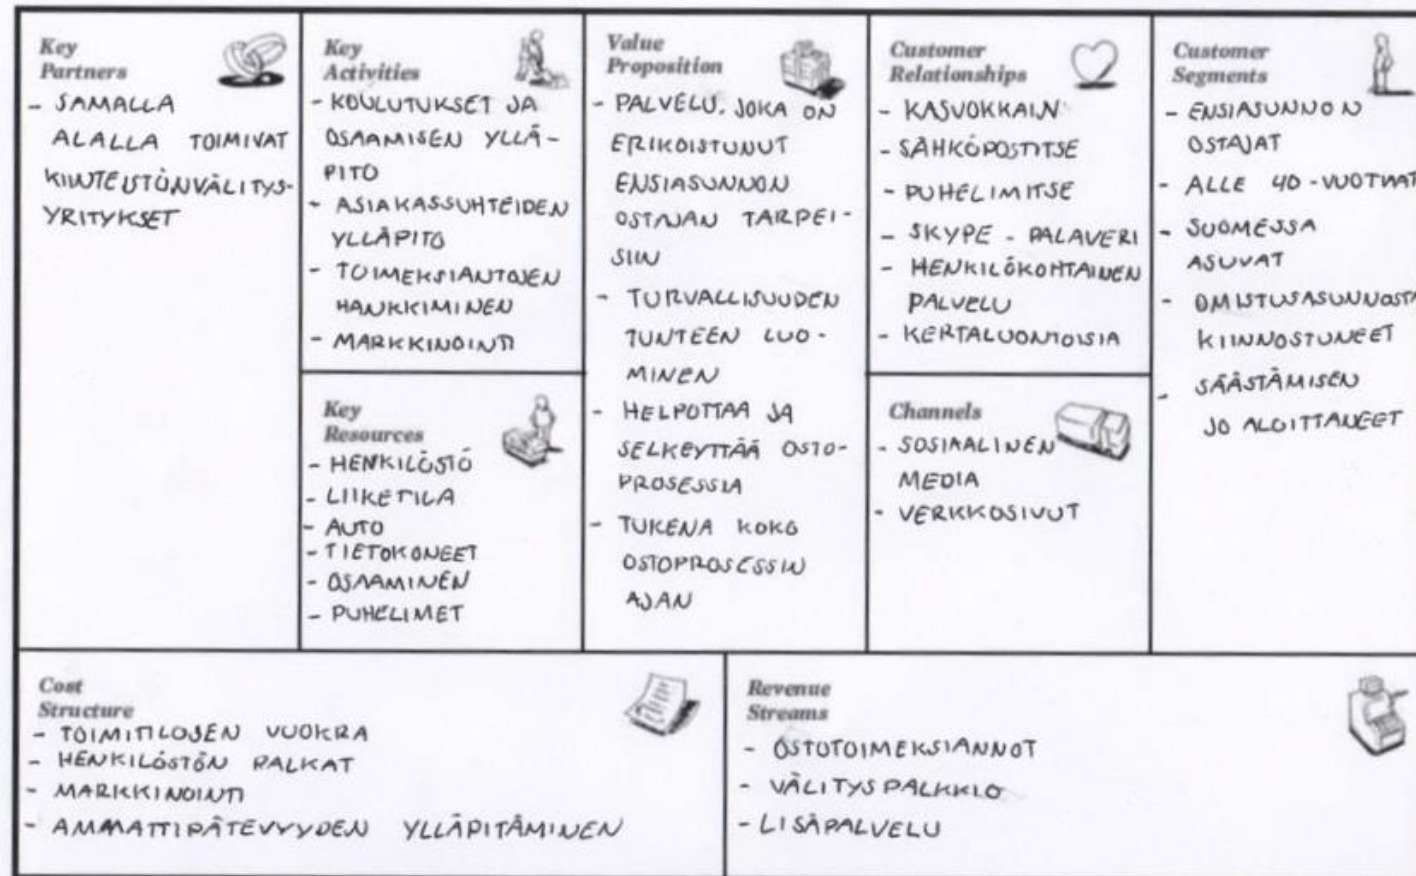 Key
Partners
- SAMALLA
ALALLA TOIMIVAT
KIINTEISTÖNVÄLITYS-
YRITYKSET
Key
Activities
- KOULUTUKSET JA
OSAAMISEN YLLÄ-
PITO
- ASIAKASSUHTEIDEN
YLLÄPITO
- TOIMEKSIANTOJEN
HANKKIMINEN
- MARKKINOINTI
Key
Resources
- HENKILÖSTÖ
- LIIKETILA
- AUTO
- TIETOKONEET
- OSAAMINEN
- PUHELIMET
Value
Proposition
- PALVELU, JOKA ON
ERIKOISTUNUT
ENSIASUNNON
OSTAJAN TARPEI-
SIIN
- TURVALLISUUDEN
TUNTEEN LUO-
MINEN
- HELPOTTAA JA
SELKEYTTÄÄ OSTO-
PROSESSIA
- TUKENA KOKO
OSTOPROSESSIN
AJAN
Customer
Relationships
- KASVOKKAIN
- SÄHKÖPOSTITSE
- PUHELIMITSE
- SKYPE - PALAVERI
- HENKILÖKOHTAINEN
PALVELU
- KERTALUONTOISIA
Channels
- SOSIAALINEN
MEDIA
- VERKKOSIVUT
Customer
Segments
- ENSIASUNNON
OSTAJAT
- ALLE 40-VUOTIAAT
- SUOMESSA
ASUVAT
- OMISTUSASUNNOSTA
KIINNOSTUNEET
- SÄÄSTÄMISEN
JO ALOITTANEET
Cost
Structure
- TOIMITILOJEN VUOKRA
- HENKILÖSTÖN PALKAT
- MARKKINOINTI
- AMMATTIPÄTEVYYDEN YLLÄPITÄMINEN
Revenue
Streams
- OSTOTOIMEKSIANNOT
- VÄLITYSPALKKIO
- LISÄPALVELU